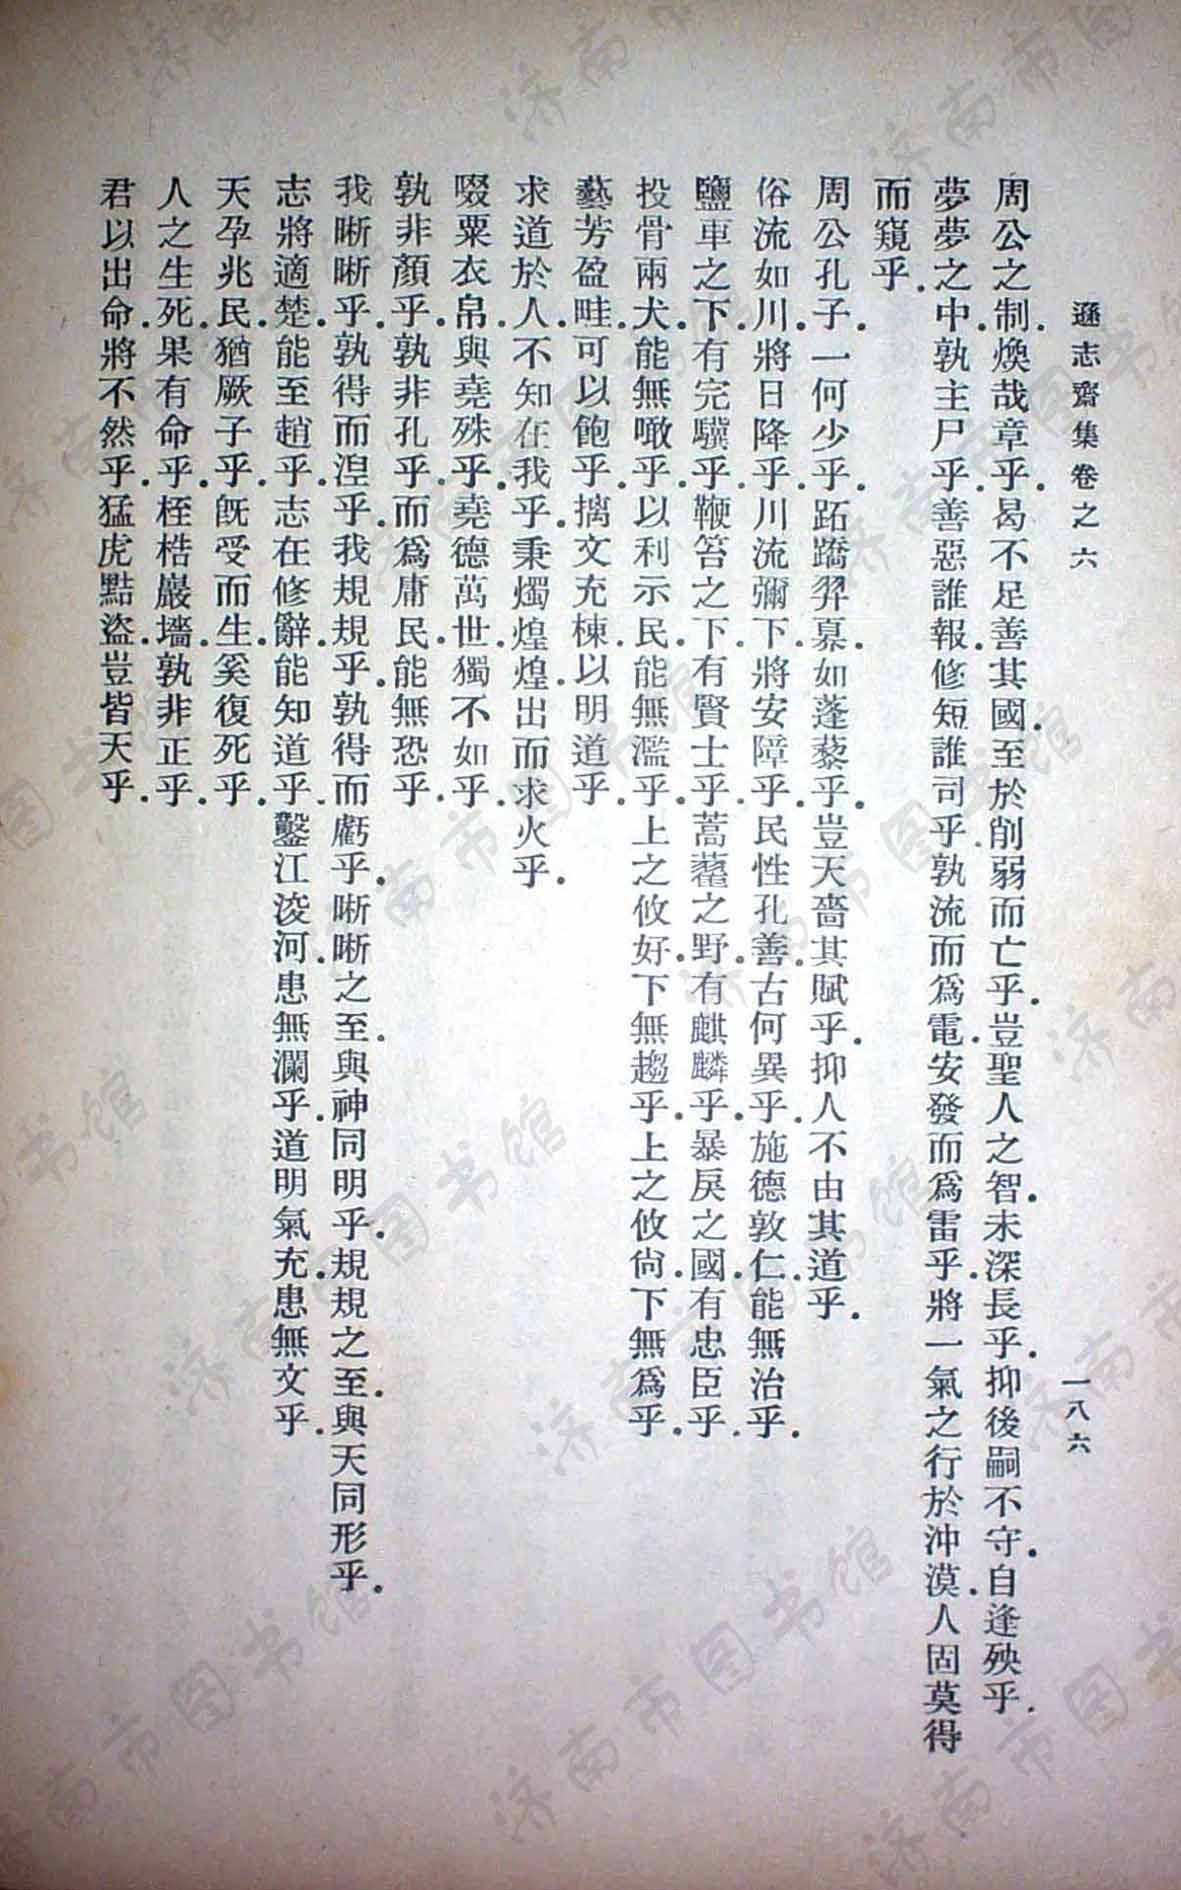 遜志齋集卷之六 一八六
周公之制.煥哉章乎.曷不足善其國.至於削弱而亡乎.豈聖人之智.未深長乎.抑後嗣不守.自逢殃乎.
夢夢之中.孰主尸乎.善惡誰報.修短誰司乎.孰流而爲電.安發而爲雷乎.將一氣之行於沖漠.人固莫得
而窺乎.
周公孔子.一何少乎.跖蹻羿奡.如蓬藜乎.豈天嗇其賦乎.抑人不由其道乎.
俗流如川.將日降乎.川流彌下.將安障乎.民性孔善.古何異乎.施德敦仁.能無治乎.
鹽車之下.有完驥乎.鞭笞之下.有賢士乎.蒿虆之野.有麒麟乎.暴戾之國.有忠臣乎.
投骨兩犬.能無噉乎.以利示民.能無濫乎.上之攸好.下無趨乎.上之攸尙.下無爲乎.
藝芳盈畦.可以飽乎.摛文充棟.以明道乎.
求道於人.不知在我乎.秉燭煌煌.出而求火乎.
啜粟衣帛.與堯殊乎.堯德萬世.獨不如乎.
孰非顏乎.孰非孔乎.而爲庸民.能無恐乎.
我晰晰乎.孰得而涅乎.我規規乎.孰得而虧乎.晰晰之至.與神同明乎.規規之至.與天同形乎.
志將適楚.能至趙乎.志在修辭.能知道乎.鑿江浚河.患無瀾乎.道明氣充.患無文乎.
天孕兆民.猶厥子乎.旣受而生.奚復死乎.
人之生死.果有命乎.桎梏巖墻.孰非正乎.
君以出命.將不然乎.猛虎黠盜.豈皆天乎.
济南市图书馆